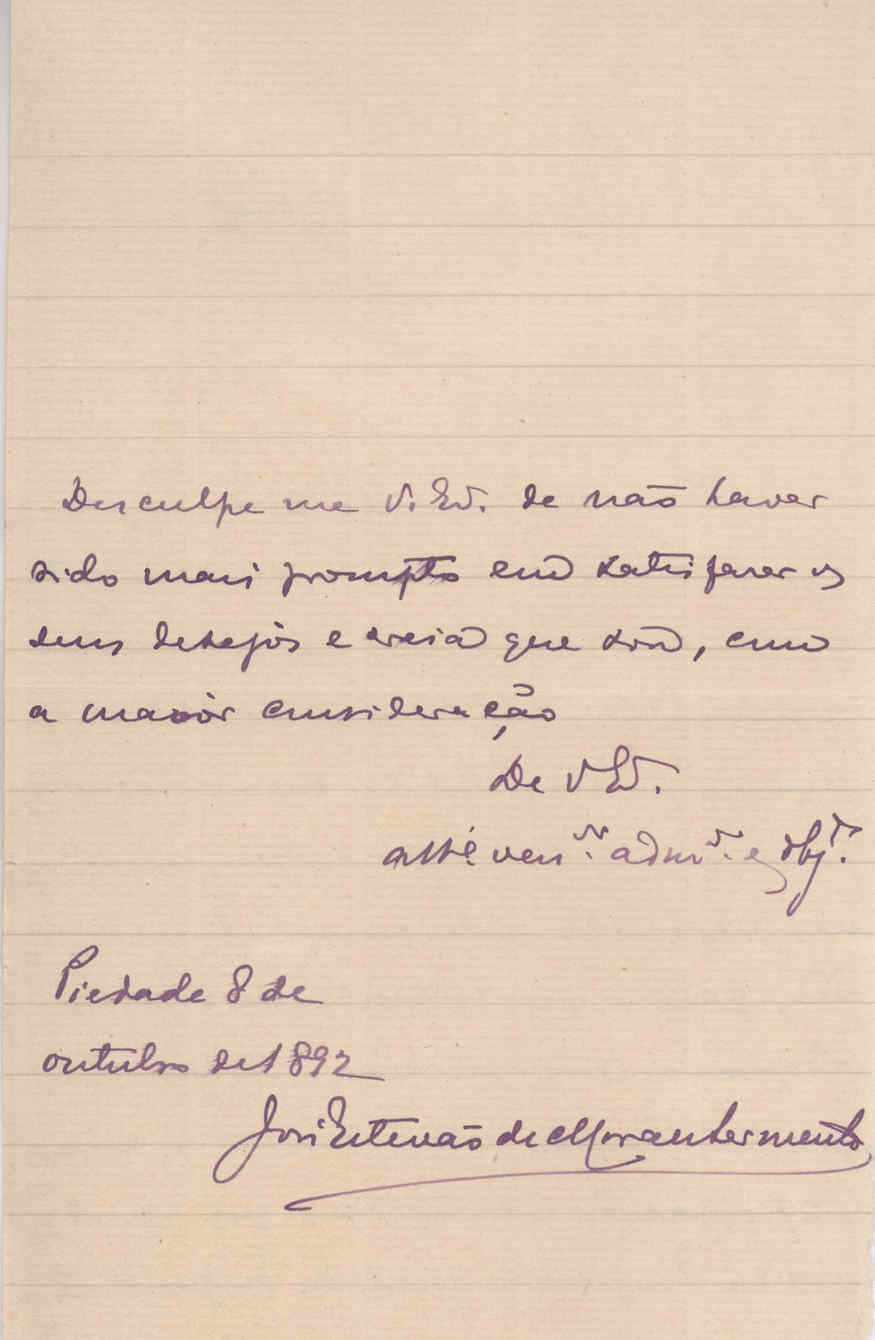 Desculpe me V. Ex. de não haver
sido mais prompto em satisfazer os
seus desejos e creia que sou, com
a maior consideração
De V Ex.
att.º ven.ºr adm.ºr e obg.º
Piedade 8 de
outubro de 1892
José Estevão de Moraes Sarmento